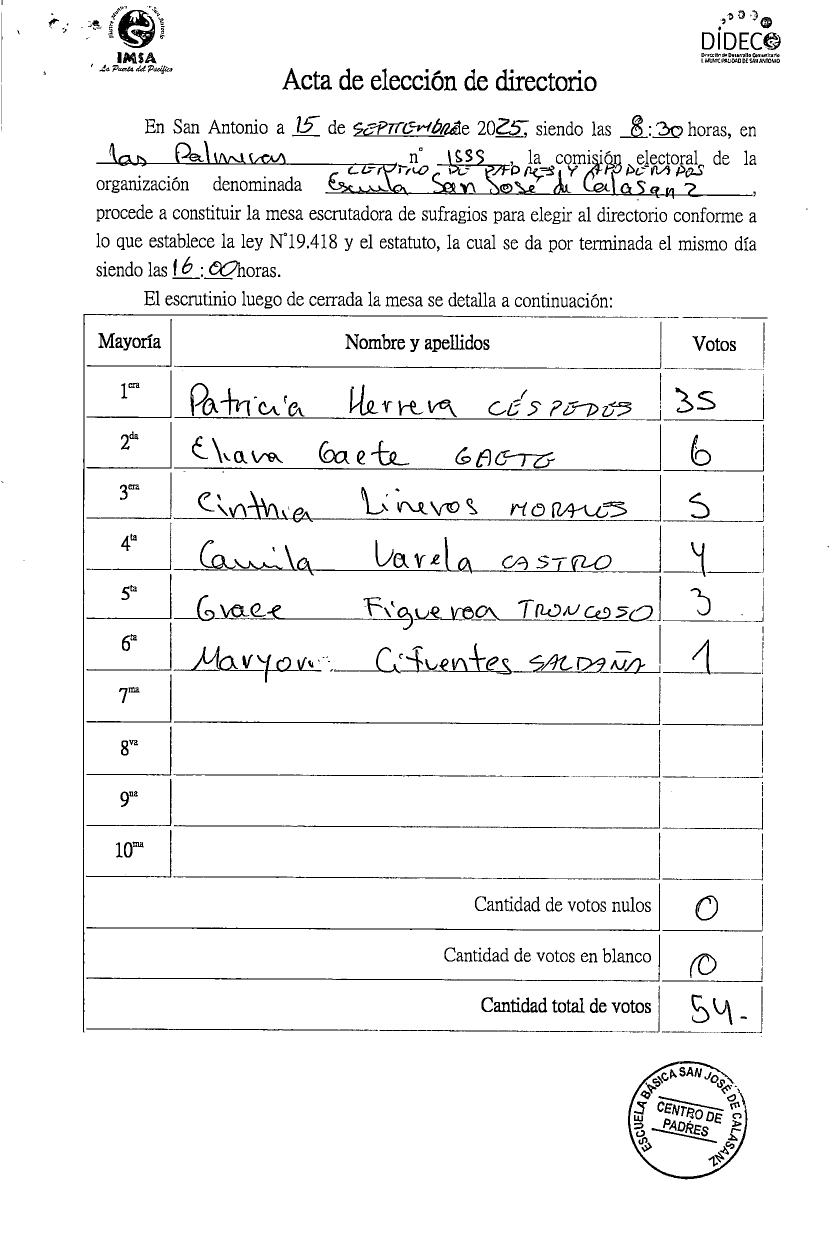 IMSA
La Puerta del Pacífico
DIDECO
Dirección de Desarrollo Comunitario
I. MUNICIPALIDAD DE SAN ANTONIO
Acta de elección de directorio
En San Antonio a 15 de SEPTIEMBRE de 2025, siendo las 8:30 horas, en
Las Palmeras n° 1555, la comisión electoral de la
CENTRO DE PADRES Y APODERADOS
organización denominada Escuela San José de Calasanz,
procede a constituir la mesa escrutadora de sufragios para elegir al directorio conforme a
lo que establece la ley N°19.418 y el estatuto, la cual se da por terminada el mismo día
siendo las 16:00 horas.
El escrutinio luego de cerrada la mesa se detalla a continuación:
Mayoría Nombre y apellidos Votos
1era Patricia Herrera CÉSPEDES 35
2da Eliana Gaete GAETE 6
3era Cinthia Lineros MORALES 5
4ta Camila Varela CASTRO 4
5ta Grace Figueroa TRONCOSO 3
6ta Maryori Cifuentes SALDAÑA 1
7ma
8va
9na
10ma
Cantidad de votos nulos 0
Cantidad de votos en blanco 0
Cantidad total de votos 54.-
ESCUELA BÁSICA SAN JOSÉ DE CALASANZ
CENTRO DE
PADRES